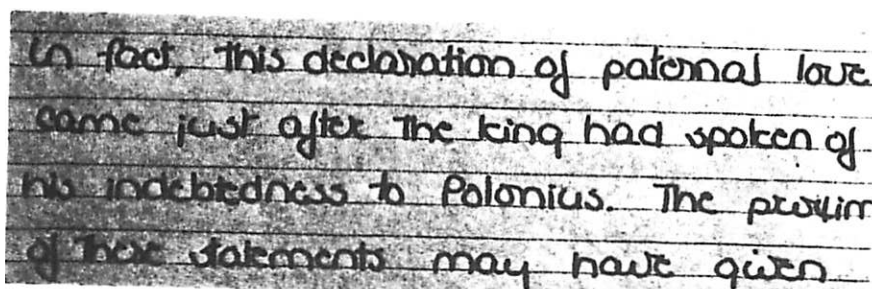 in fact, this declaration of paternal love
came just after the king had spoken of
his indebtedness to Polonius. The proxim
of these statements may have given